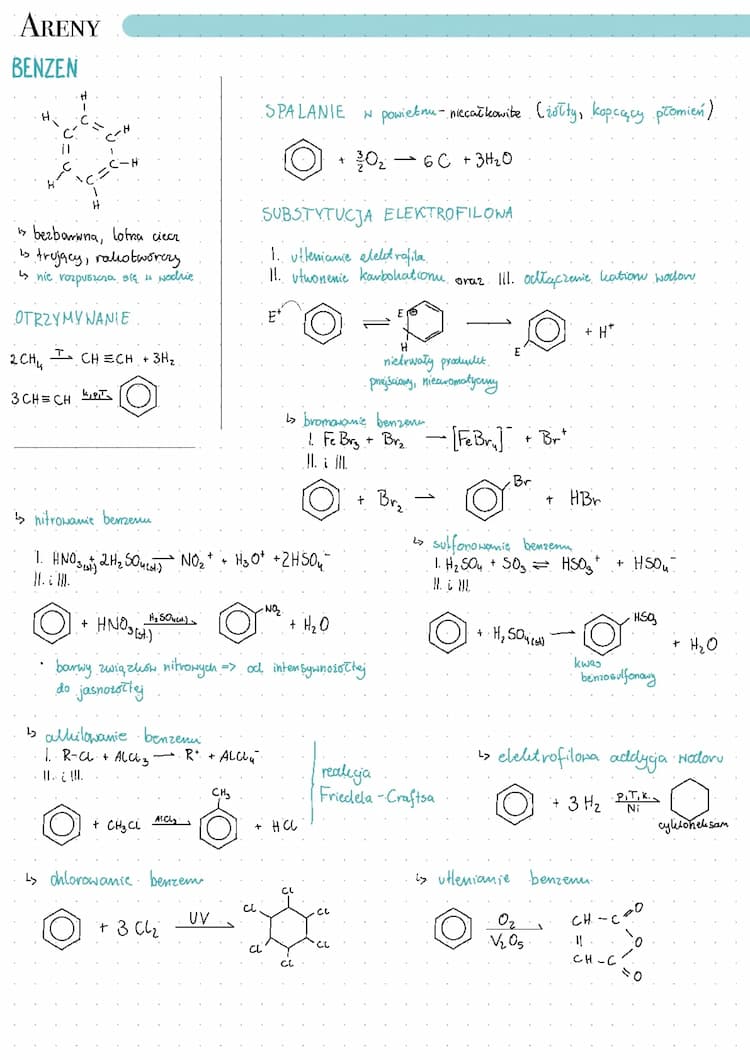 ARENY
BENZEN
H
H C H
C C
C C-H
H C
H
↳ bezbarwna, lotna ciecz
↳ trujący, rakotwórczy
↳ nie rozpuszcza się w wodzie
OTRZYMYWANIE
2CH₄ —T→ CH≡CH + 3H₂
3CH≡CH —k,p,T→
SPALANIE w powietrzu - niecałkowite (żółty, kopcący płomień)
+ 3/2 O₂ → 6C + 3H₂O
SUBSTYTUCJA ELEKTROFILOWA
I.
II. utworzenie karbokationu oraz III. odłączenie kationu wodoru
E⁺ ⇌ E ⊕ H → E + H⁺
nietrwały produkt
przejściowy, niearomatyczny
↳ bromowanie benzenu
I. FeBr₃ + Br₂ → [FeBr₄]⁻ + Br⁺
II. i III.
+ Br₂ → Br + HBr
↳ nitrowanie benzenu
I. HNO₃(st.) + 2H₂SO₄(st.) → NO₂⁺ + H₃O⁺ + 2HSO₄⁻
II. i III.
+ HNO₃(st.) —H₂SO₄(st.)→ NO₂ + H₂O
• barwy związków nitrowych => od intensywnożółtej
do jasnożółtej
↳ sulfonowanie benzenu
I. H₂SO₄ + SO₃ ⇌ HSO₃⁺ + HSO₄⁻
II. i III.
+ H₂SO₄(st) → HSO₃ + H₂O
kwas
benzosulfonowy
↳ alkilowanie benzenu
I. R-Cl + AlCl₃ → R⁺ + AlCl₄⁻
II. i III.
+ CH₃Cl —AlCl₃→ CH₃ + HCl
reakcja
Friedela-Craftsa
↳ elektrofilowa addycja wodoru
+ 3H₂ —p,T,k. Ni→
cykloheksan
↳ chlorowanie benzenu
+ 3Cl₂ —UV→ Cl Cl Cl Cl Cl Cl
↳ utlenianie benzenu
—O₂ V₂O₅→
CH-C=O
|| O
CH-C=O